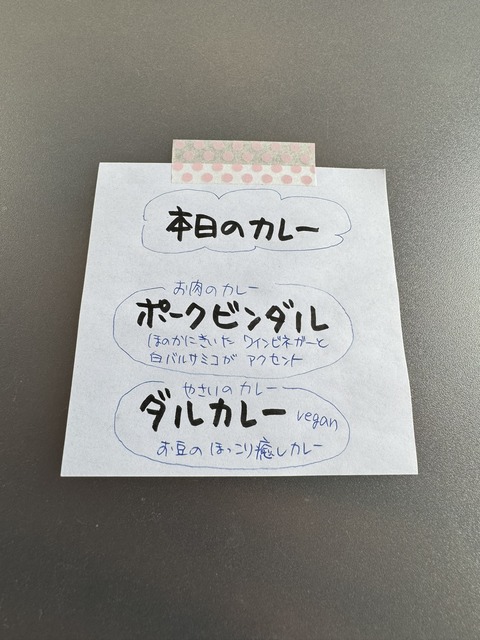 本日のカレー
お肉のカレー
ポークビンダル
ほのかにきいた ワインビネガーと
白バルサミコが アクセント
やさいのカレー
ダルカレー vegan
お豆の ほっこり癒しカレー